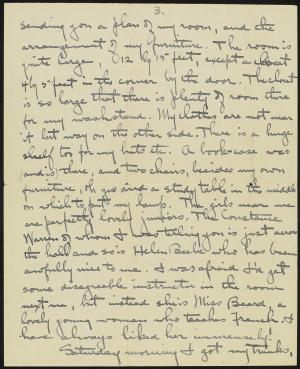 3.
sending you a plan of my room, and the
arrangement of my furniture. The room is
quite large, 12 by 15 feet, except a closet
4 by 5 feet in the corner by the door. The closet
is so large that there is plenty of room there
for my washstand. My clothes are not near
it but way on the other side. There is a huge
shelf too, for my hats etc. A book-case was
(and is) there, and two chairs, besides my own
furniture, oh yes and a study table in the middle
on which to put my lamp. The girls near me
are perfectly lovely juniors. The Constance
Warren of whom I was telling you is just across
the hall and so is Helen Beebe who has been
awfully nice to me. I was afraid I'd get
some disagreeable instructor in the room
next me, but instead she is Miss Beard, a
lovely young woman who teaches French. I
have always liked her immensely.
Saturday morning I got my trunks,